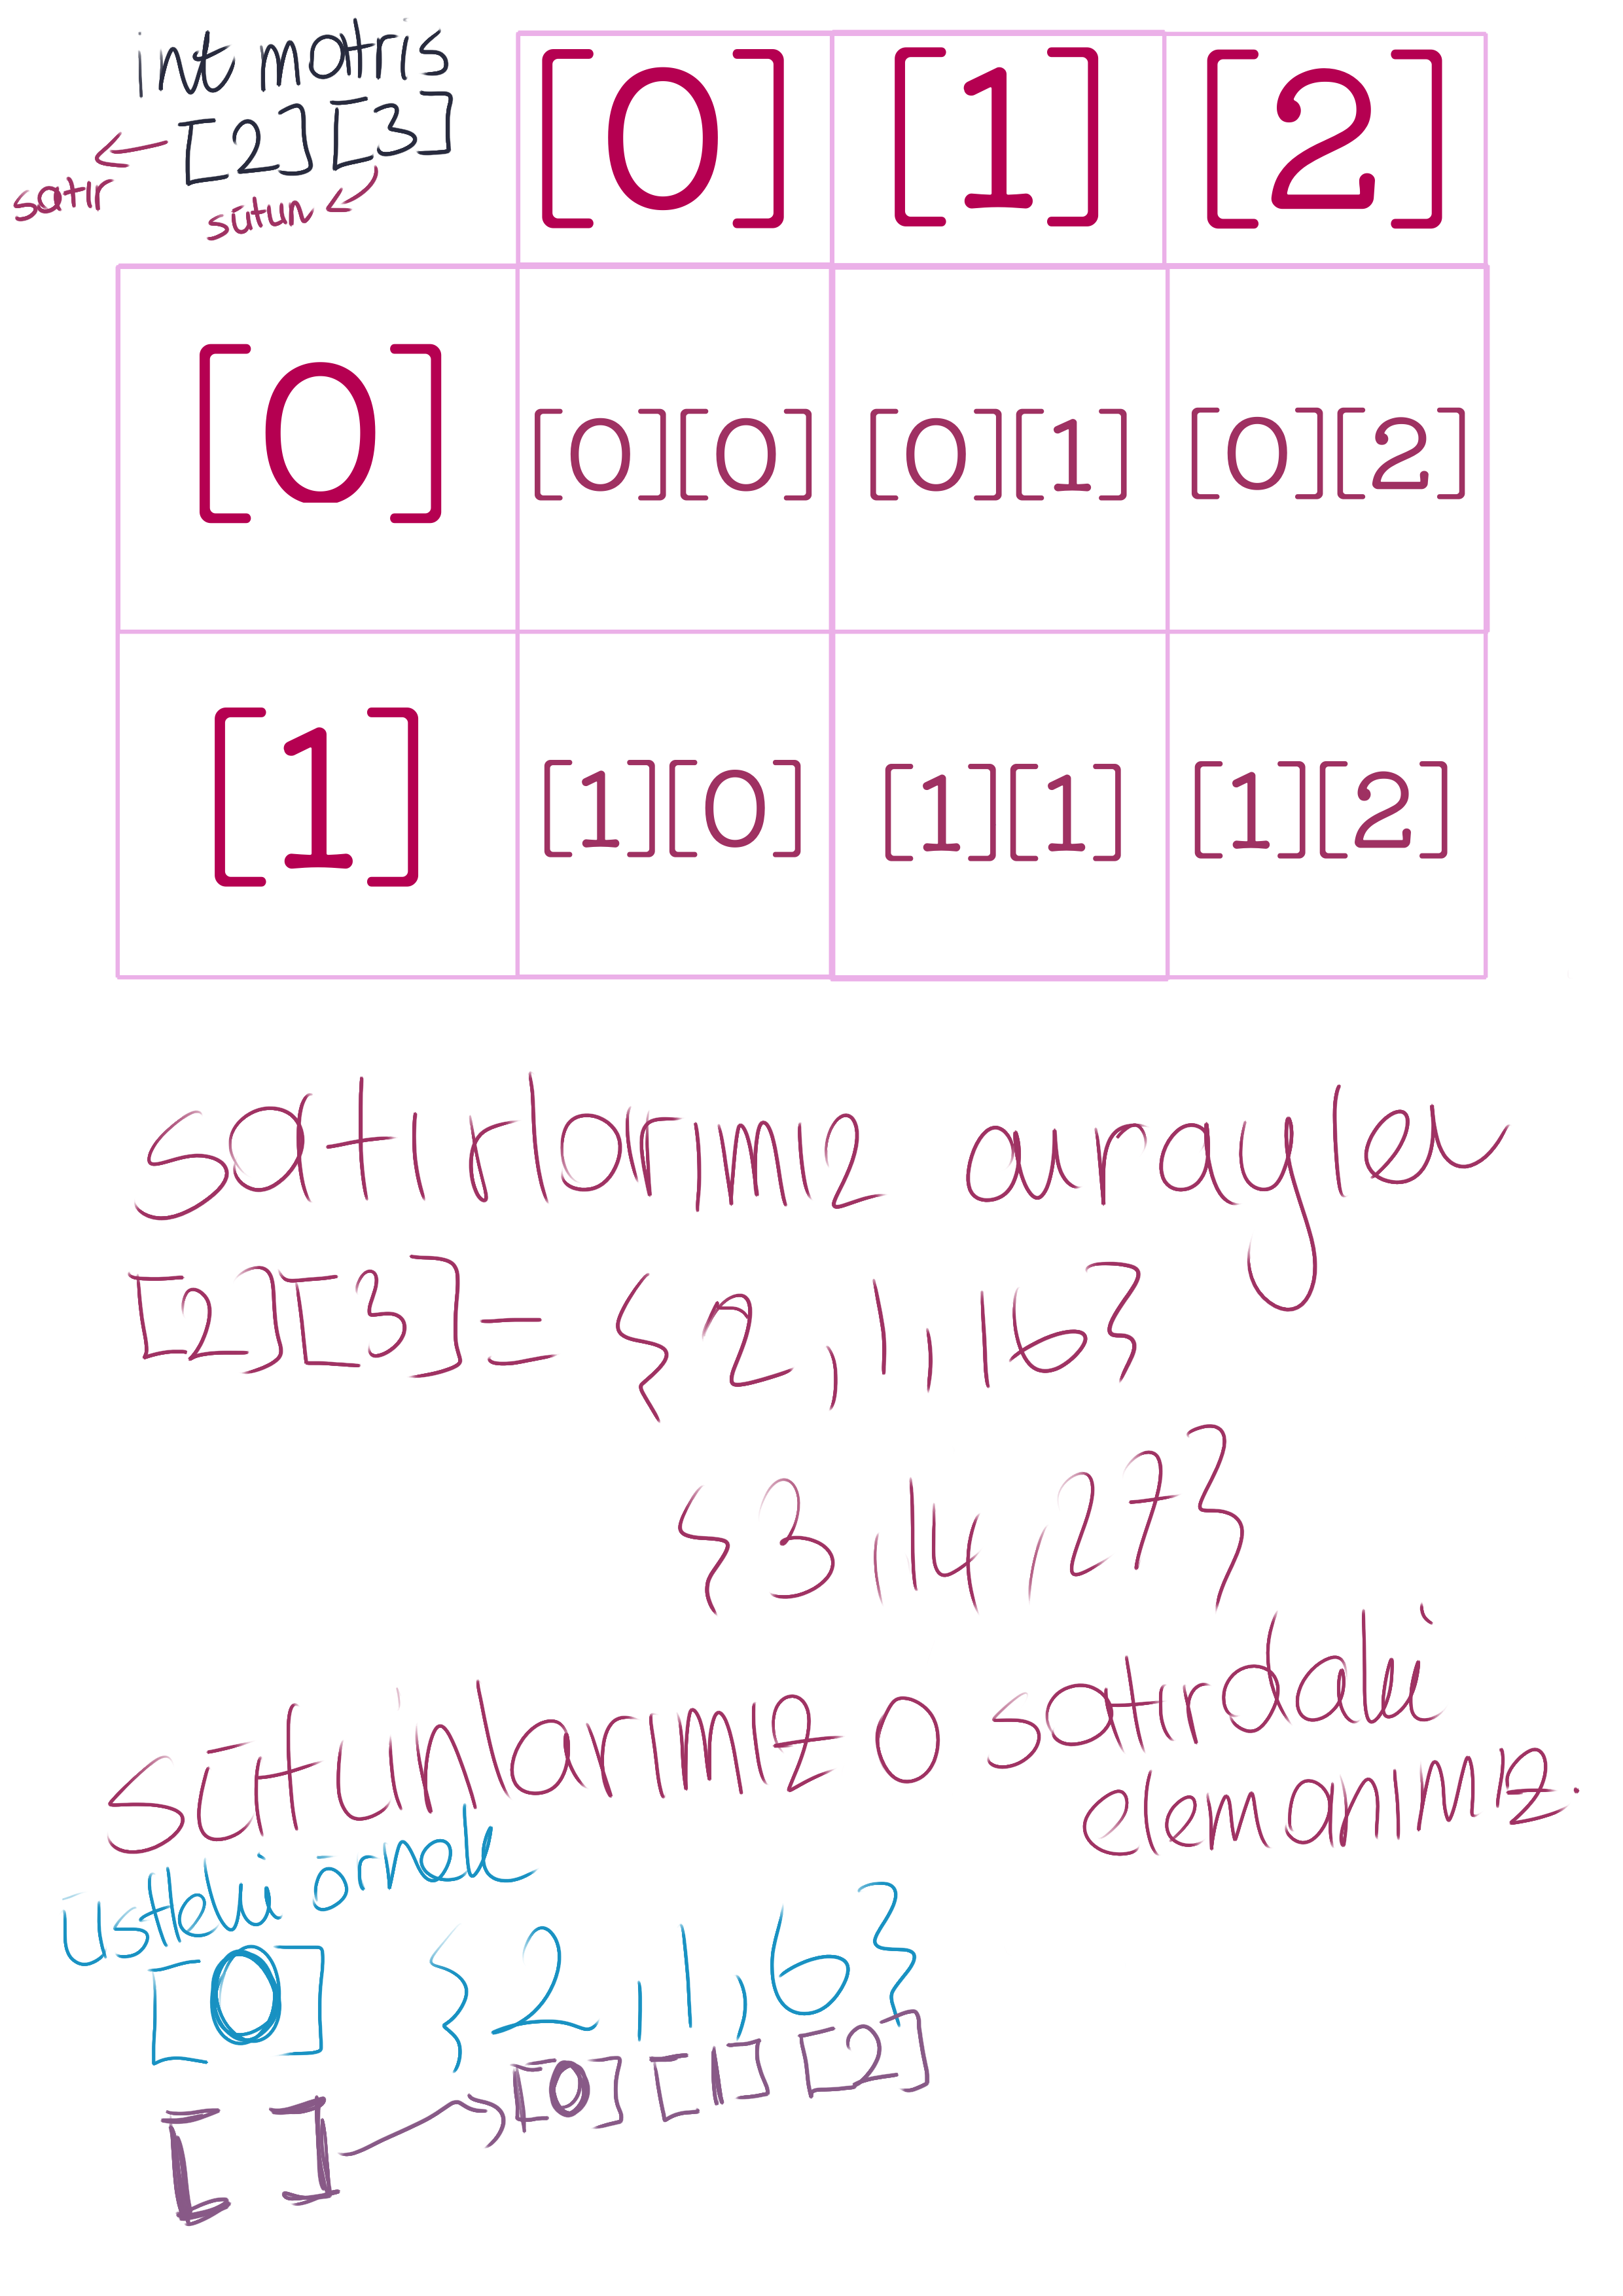 int matris
[2][3]
satır
sütun
[0] [1] [2]
[0] [0][0] [0][1] [0][2]
[1] [1][0] [1][1] [1][2]
satırlarımız arrayler
[2][3] = {2,1,16}
{3,14,27}
sütünlarımız o satırdaki
elemanımız.
üstteki örnek
[0] {2,1,16}
[ ] [0] [1] [2]